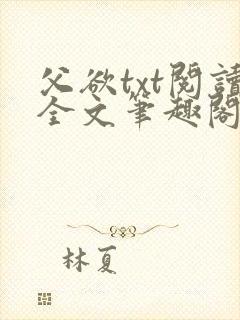 父欲txt閱讀
全文筆趣閣
林夏